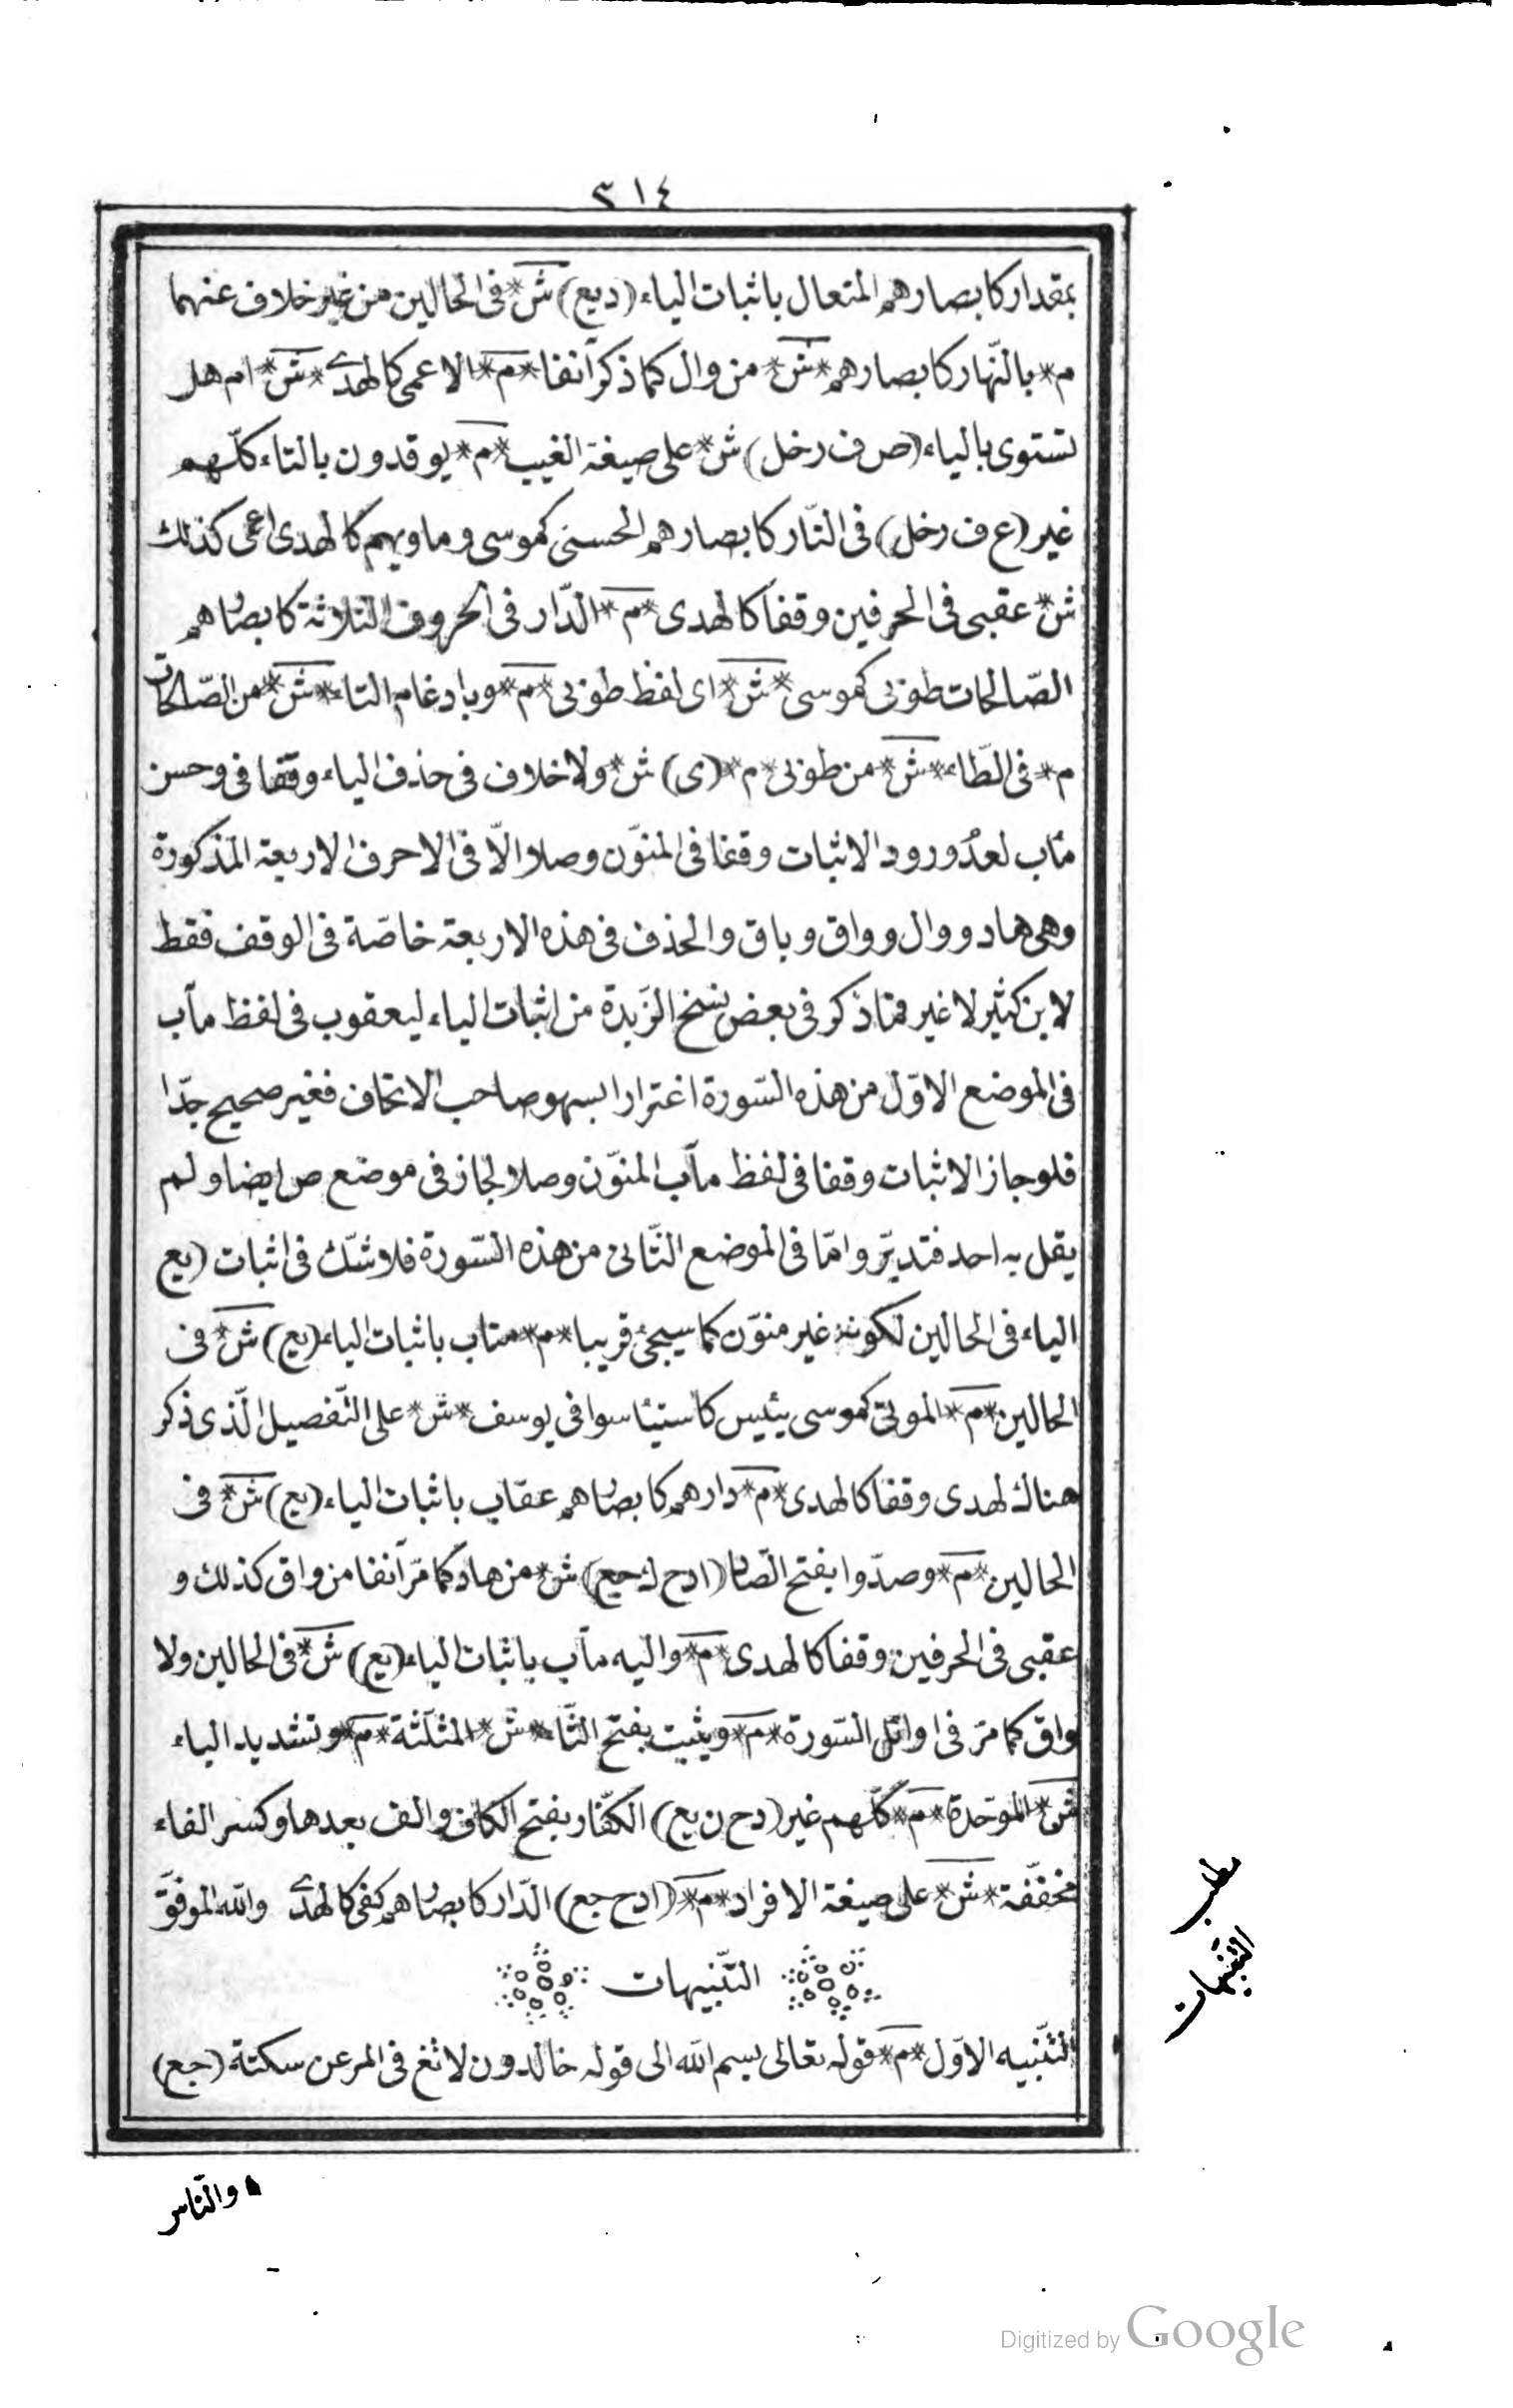 ٣١٤
بمقدار كابصارهم المتعال باثبات الياء (د يع) ش* فى الحالين من غير خلاف عنهما
م* بالنّهار كابصارهم* ش* من وال كما ذكر آنفا* م* الاعمى كالهدى* ش* ام هل
تستوى بالياء (ص ف رخل) ش* على صيغة الغيب* م* يوقدون بالتاء كلّهم
غير (ع ف رخل) فى النّار كابصارهم الحسنى كموسى وماويهم كالهدى اعمى كذلك
ش* عقبى فى الحرفين وقفا كالهدى* م* الدّار فى الحروف الثلاثة كابصارهم
الصّالحات طوبى كموسى* ش* اى لفظ طوبى* م* وبادغام التاء* ش* من الصّالحات
م* فى الطّاء* ش* من طوبى* م* (ى) ش* ولا خلاف فى حذف الياء وقفا فى وحسن
مآب لعدم ورود الاثبات وقفا فى المنوّن وصلا الّا فى الاحرف الاربعة المذكورة
وهى هاد ووال وواق وباق والحذف فى هذه الاربعة خاصّة فى الوقف فقط
لابن كثير لا غير فما ذكر فى بعض نسخ الزبدة من اثبات الياء ليعقوب فى لفظ مآب
فى الموضع الاوّل من هذه السّورة اغترارا بسهو صاحب الاتحاف فغير صحيح جدّا
فلو جاز الاثبات وقفا فى لفظ مآب المنوّن وصلا لجاز فى موضع ص ايضا ولم
يقل به احد فتدبّر وامّا فى الموضع الثّانى من هذه السّورة فلا شكّ فى اثبات (يع
الياء فى الحالين لكونه غير منوّن كما سيجئ قريبا* م* متاب باثبات الياء (يع) ش* فى
الحالين* م* الموتى كموسى ييئس كاستيئاسوا فى يوسف* ش* على التّفصيل الّذى ذكر
هناك لهدى وقفا كالهدى* م* دارهم كابصارهم عقاب باثبات الياء (يع) ش* فى
الحالين* م* وصدّوا بفتح الصّاد (ا د ح ك جع) ش* من هاد كما مرّ آنفا من واق كذلك و
عقبى فى الحرفين وقفا كالهدى* م* واليه مآب باثبات الياء (يع) ش* فى الحالين ولا
واق كما مرّ فى اوائل السّورة* م* ويثبت بفتح الثّاء* ش* المثلّثة* م* وتشديد الباء
ش* الموحّدة* م* كلّهم غير (د ح ن يع) الكفّار بفتح الكاف والف بعدها وكسر الفاء
مخفّفة* ش* على صيغة الافراد* م* (ا د ح جع) الدّار كابصارهم كفى كالهدى والله الموفّق
التّنبيهات
التّنبيه الاوّل* م* قوله تعالى بسم الله الى قوله خالدون لا ثغ فى المر عن سكتة (جع)
مطلب
التّنبيهات
والنّاس
Digitized by Google